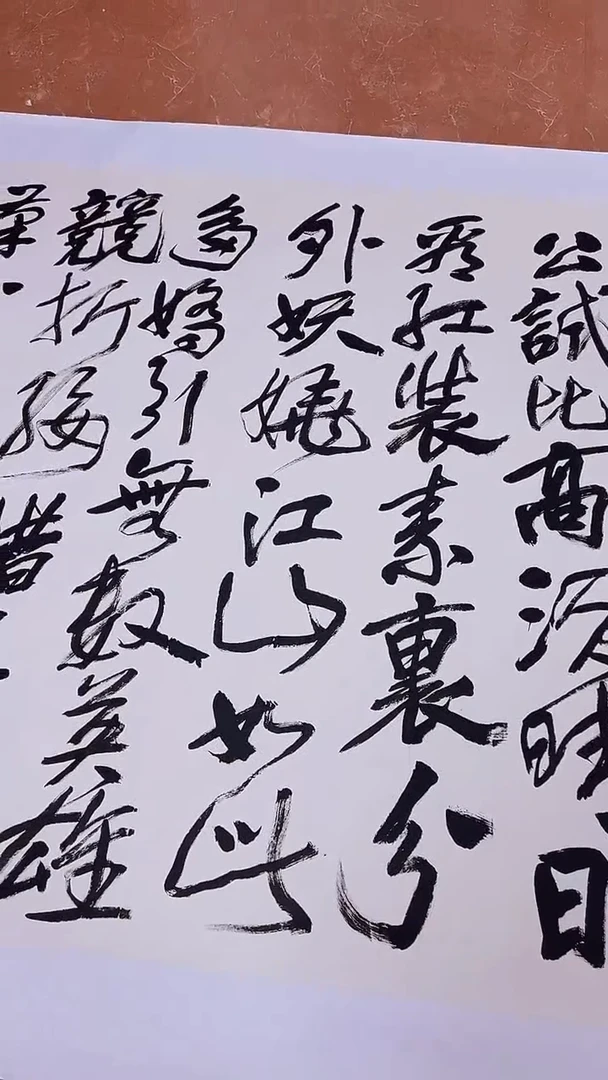 公試比高須晴日
看红装素裹分
外妖嬈江山如此
多嬌引無數英雄
競折腰惜